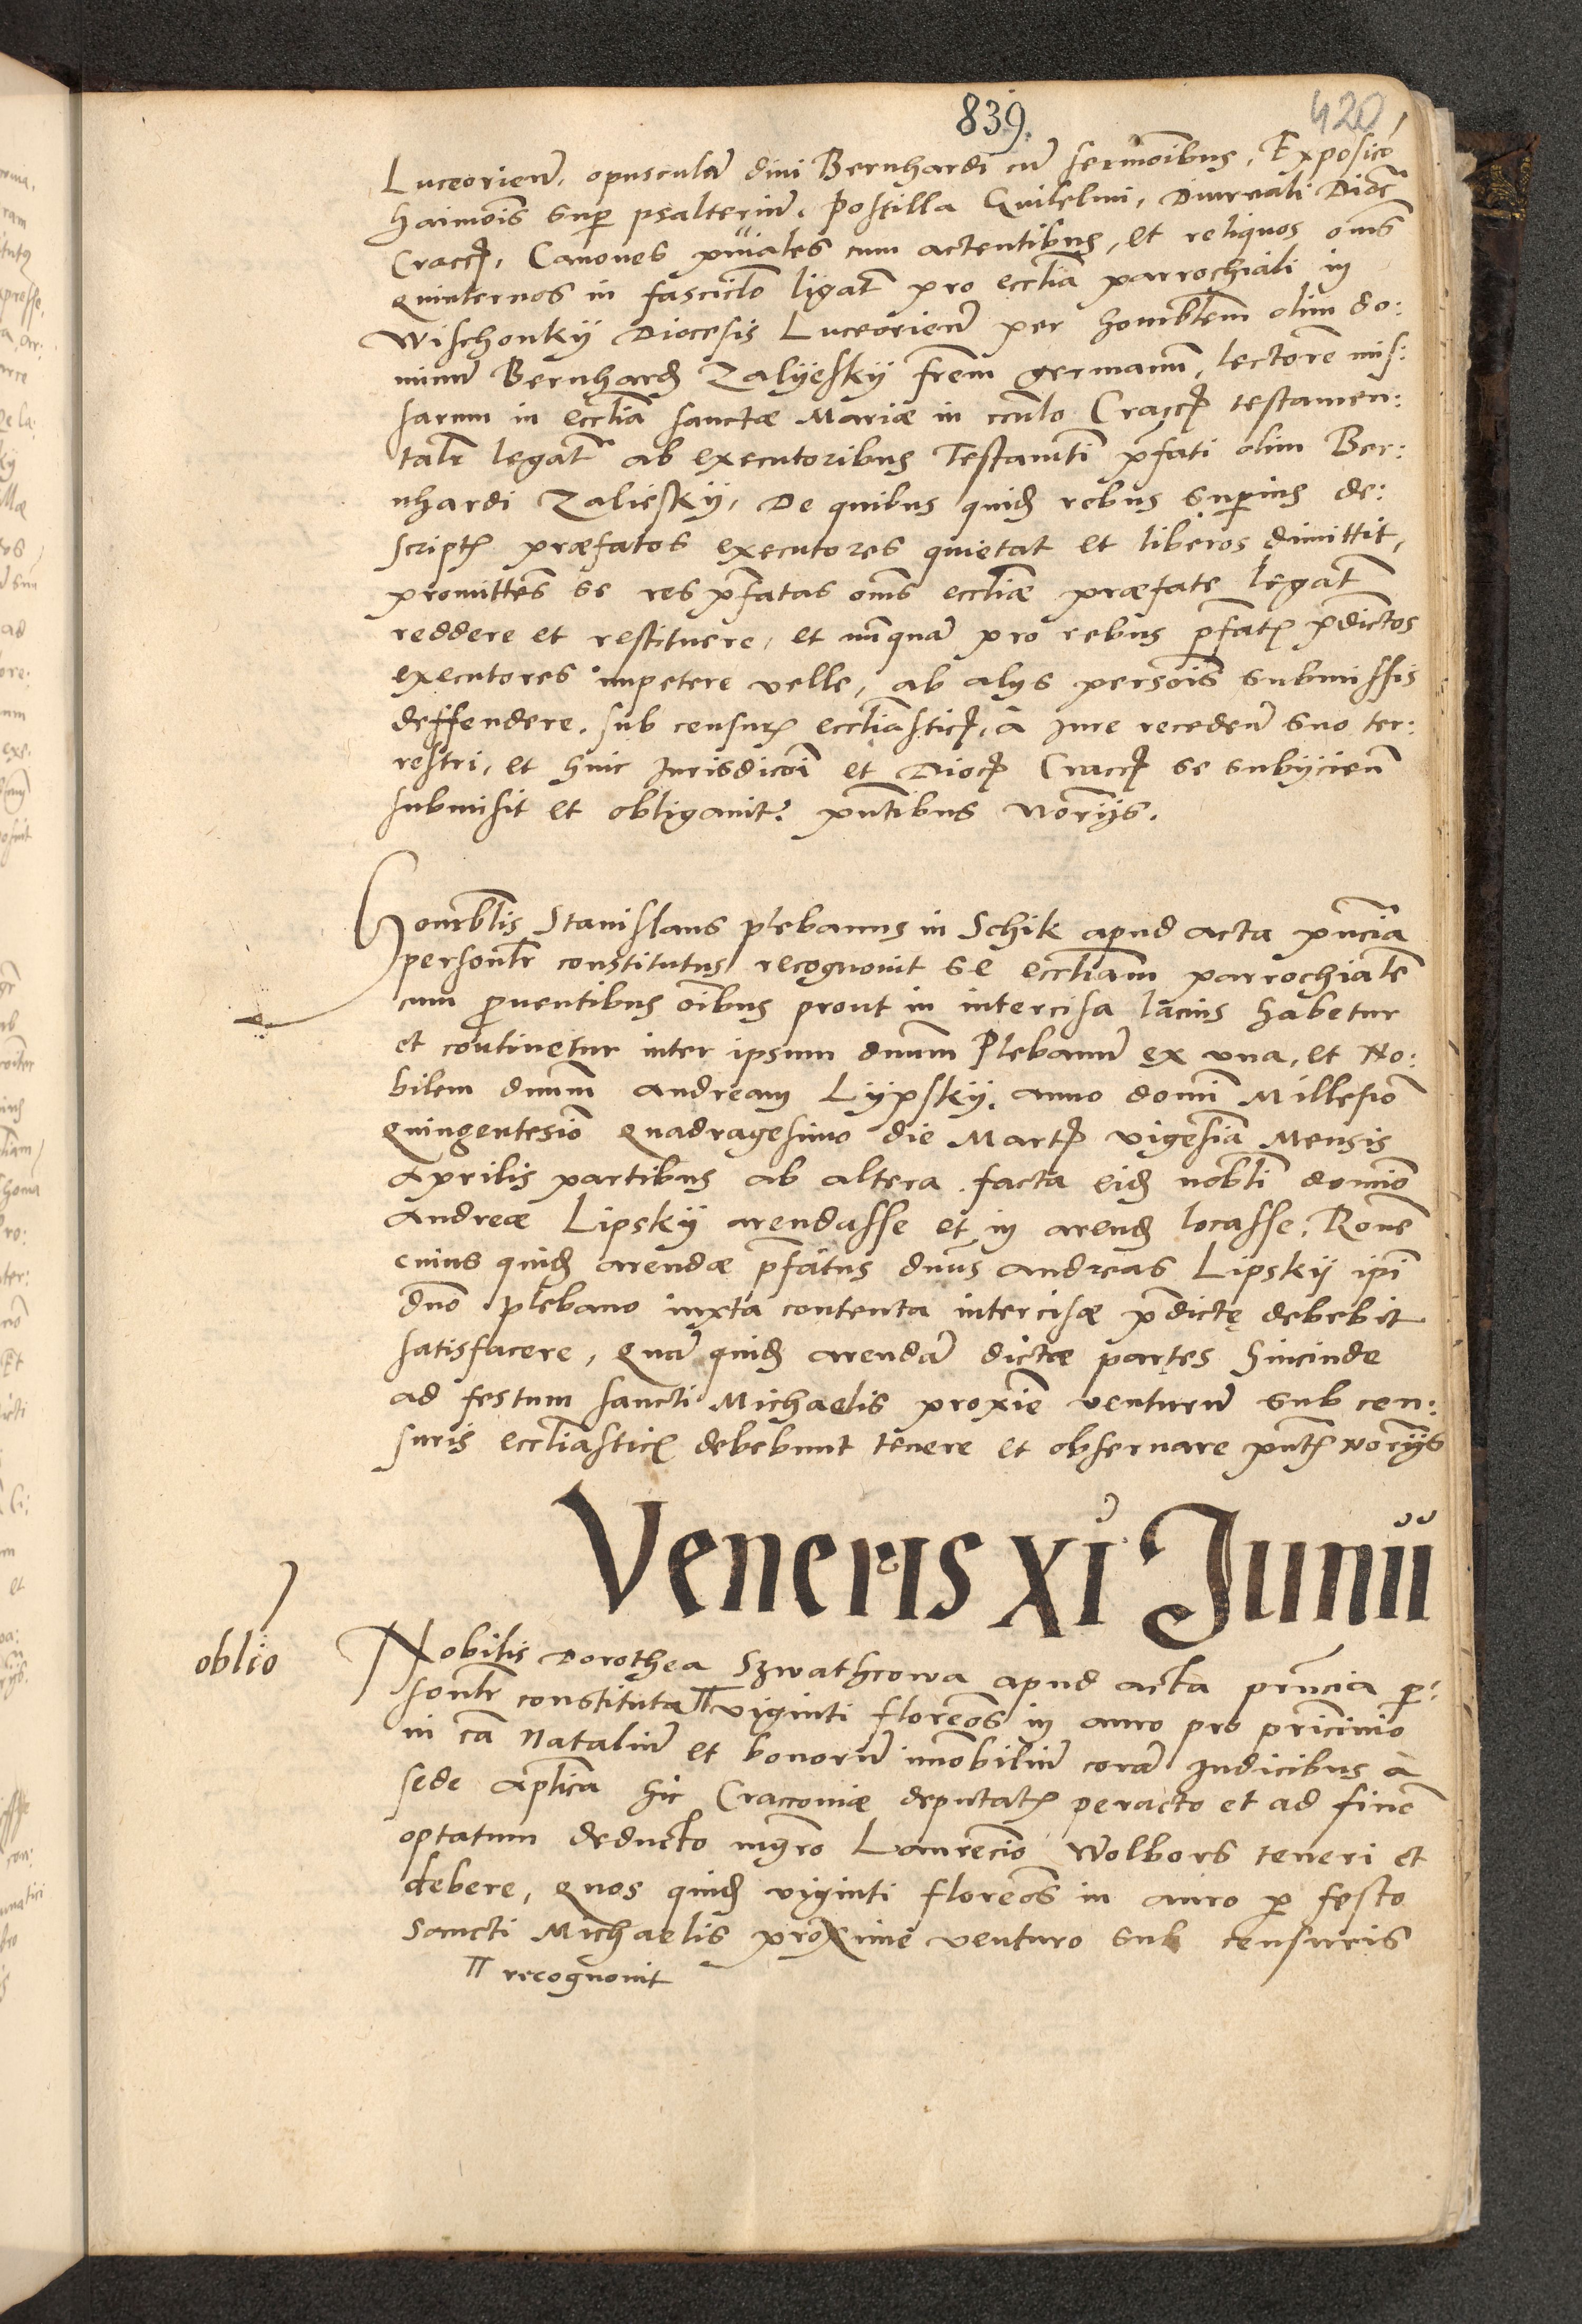 839.
420
Luceorien̄. opusculā diui Bernhardi cū sermōibus, Exposicō
haimōis sup psalteriū. Postilla Guilelmi, Diurnali Dioc̄
Cracc̄, Canones pniales cum actentibus, et reliquos om̄s
quinternos in fascicl̄o ligat̄ pro eccl̄ia parrochiali in
Wischonky Diocesis Luceorien̄ per honorabl̄em olim do:
minū Bernhard̄ Zalyesky fr̄em germanū, lectorē mis:
sarum in eccl̄ia sanctæ Mariæ in cc̄ulo Cracc̄ testamen:
talr̄ legat̄ ab executoribus Testam̄ti p̄fati olim Ber:
nhardi Zaliesky, De quibus quid̄ rebus superius de:
script̄ præfatos executores quietat et liberos dimittit,
promittēs se res p̄fatas om̄s eccl̄iæ præfate legat̄
reddere et restituere, et nūquā pro rebus p̄fat̄ p̄dictos
executores impetere velle, ab alys persōis submissis
deffendere. sub censur̄ eccl̄iastic̄, a Iure recedeñ suo ter:
restri, et huic Iurisdicc̄oi et Dioc̄ Cracc̄ se subijcien̄
submisit et obligauit. pn̄tibus Nor̄ijs.
Honorbl̄is Stanislaus plebanus in Schik apud acta pn̄cia
personlr̄ constitutus recognouit se eccl̄iam parrochialē
cum p̄uentibus oībus prout in intercisa lacius habetur
et continetur inter ipsum dnūm Plebanū ex vna, et No:
bilem dnūm Andream Lypsky. anno domī Millesiō
quingentesiō quadragesimo die Mart̄ vigesīa Mensis
Aprilis partibus ab altera facta eid̄ nobl̄i domiō
Andreæ Lipsky arendasse et in arend̄ locasse. Ronē
cuius quid̄ arendæ p̄fatus dnūs Andreas Lipsky ip̄i
dnō plebano iuxta contenta intercisæ p̄dictę debebit
satisfacere, quā quid̄ arendā dictæ partes hincinde
ad festum sancti Michaelis proxiē venturū sub cen:
suris eccl̄iastic̄ debebunt tenere et obseruare pn̄t̄ Nor̄ijs
Veneris XI Junii
obl̄io
Nobilis Dorothea Szwathcowa apud acta pn̄cia p̄:
sonlr̄ constituta π viginti florēos in auro pro
in cā Nataliū et bonorū imobiliū corā Iudicibus a
sede Apl̄ica hic Cracouiæ deputat̄ peracto et ad finē
optatum deducto mgr̄o Laurēcio Wolbors teneri et
debere, quos quid̄ viginti florēos in auro p̄ festo
Sancti Michaelis proxime venturo sub censuris
π recognouit